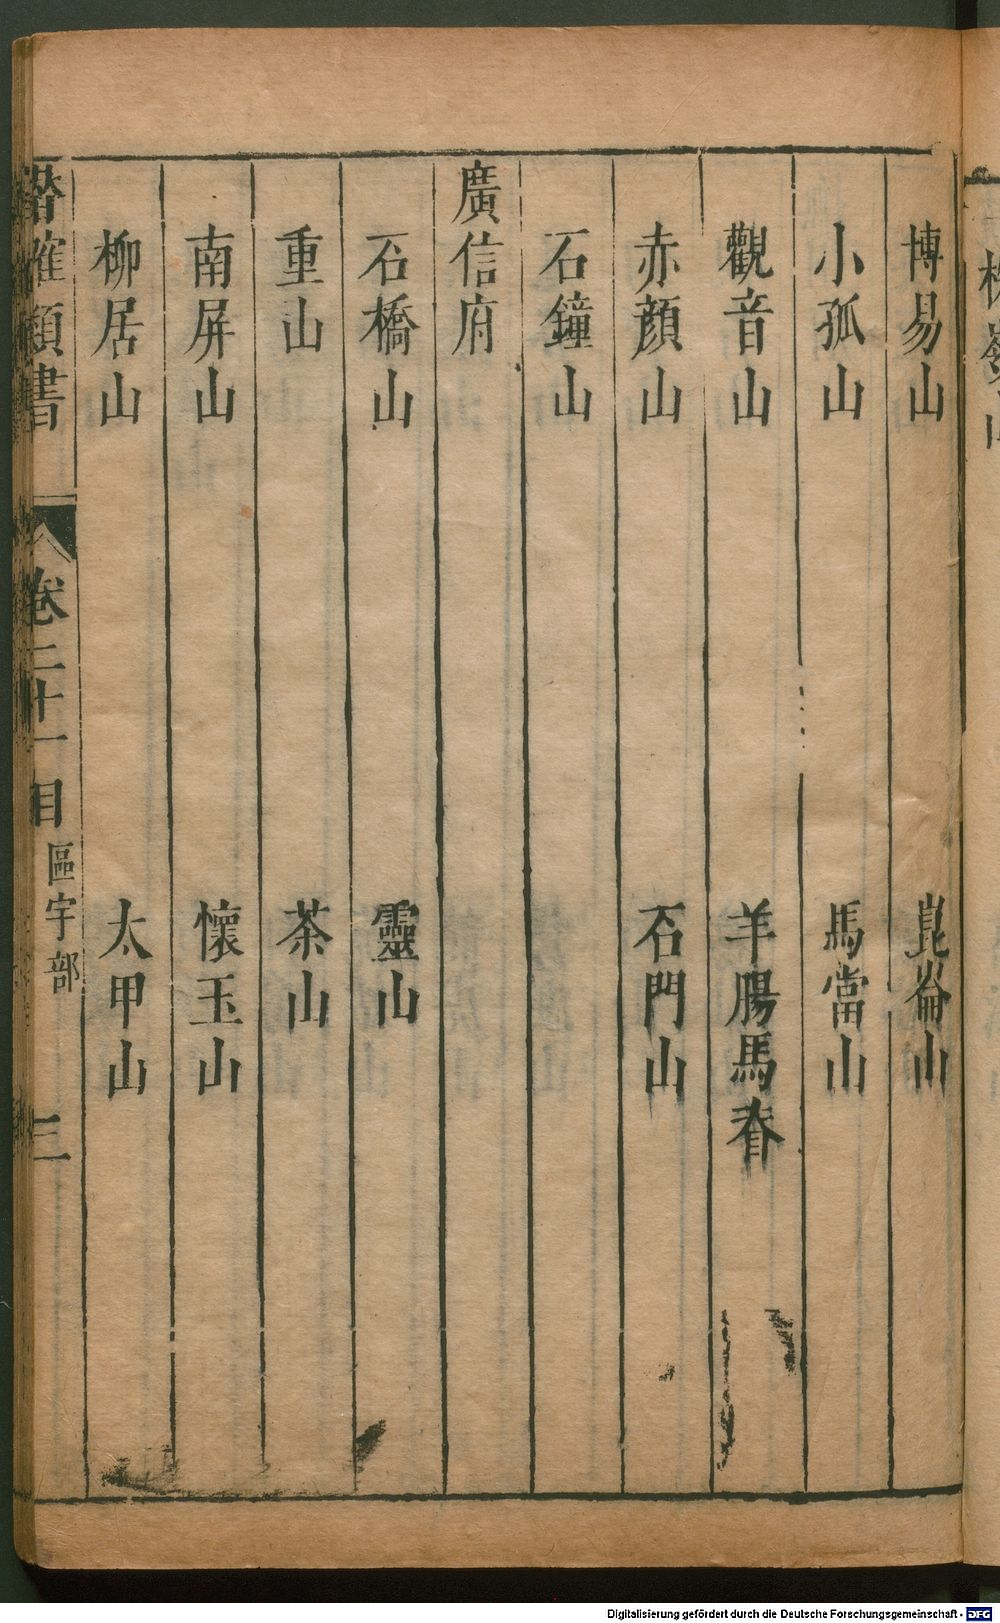 博易山 崑崙山
小孤山 馬當山
觀音山 羊腸馬脊
赤顏山 石門山
石鐘山
廣信府
石橋山 靈山
重山 茶山
南屏山 懷玉山
柳居山 太甲山
潛確類書 卷二十一目 區宇部 三
Digitalisierung gefördert durch die Deutsche Forschungsgemeinschaft - DFG